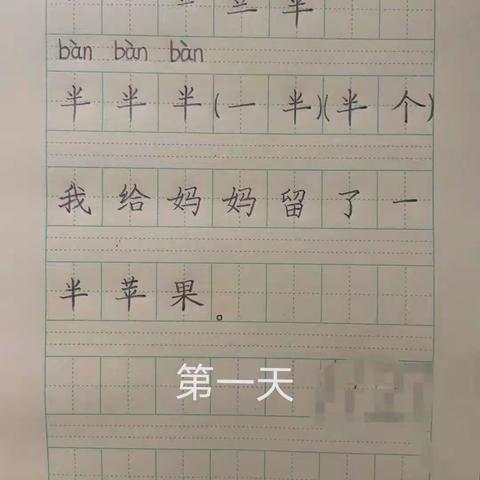 半
bàn bàn bàn
半半半(一半)(半个)
我给妈妈留了一
半苹果。
第一天